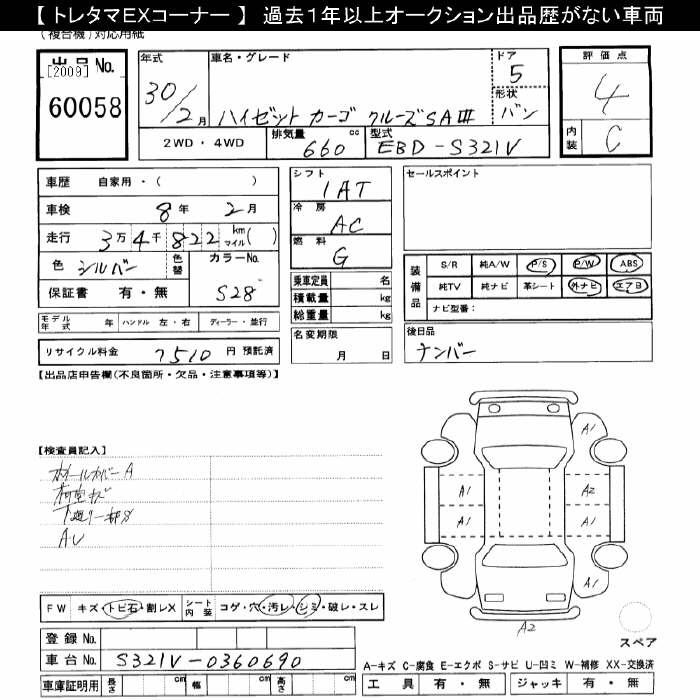 【 トレタマEXコーナー 】 過去１年以上オークション出品歴がない車両
(複合機)対応用紙
出品No.
[2009]
60058
年式
30/2月
車名・グレード
ハイゼット カーゴ クルーズSAⅢ
ドア
5
形状
バン
2WD・4WD
排気量 cc
660
型式
EBD-S321V
評価点
4
内装
C
車歴 自家用・( )
車検 8年 2月
走行 3万4千822 km マイル( )
色 シルバー
色替
カラーNo.
S28
保証書 有・無
シフト
IAT
冷房
AC
燃料
G
乗車定員 名
積載量 kg
総重量 kg
セールスポイント
装備品
S/R 純A/W P/S P/W ABS
純TV 純ナビ 革シート 外ナビ エアB
ナビ型番:
モデル年式 年 ハンドル 左・右 ディーラー・並行
リサイクル料金 7510 円 預託済
名変期限
月 日
後日品
ナンバー
【出品店申告欄(不良箇所・欠品・注意事項等)】
【検査員記入】
ホイールカバーA
荷室キズ
AU
A1
A1
A2
A1
A1
A1
A2
FW キズ・トビ石・割レX
シート内装 コゲ・穴・汚レ・シミ・破レ・スレ
登録No.
車台No. S321V-0360690
車庫証明用 長さ cm 幅 cm 高さ cm
スペア
A-キズ C-腐食 E-エクボ S-サビ U-凹ミ W-補修 XX-交換済
工具 有・無 ジャッキ 有・無